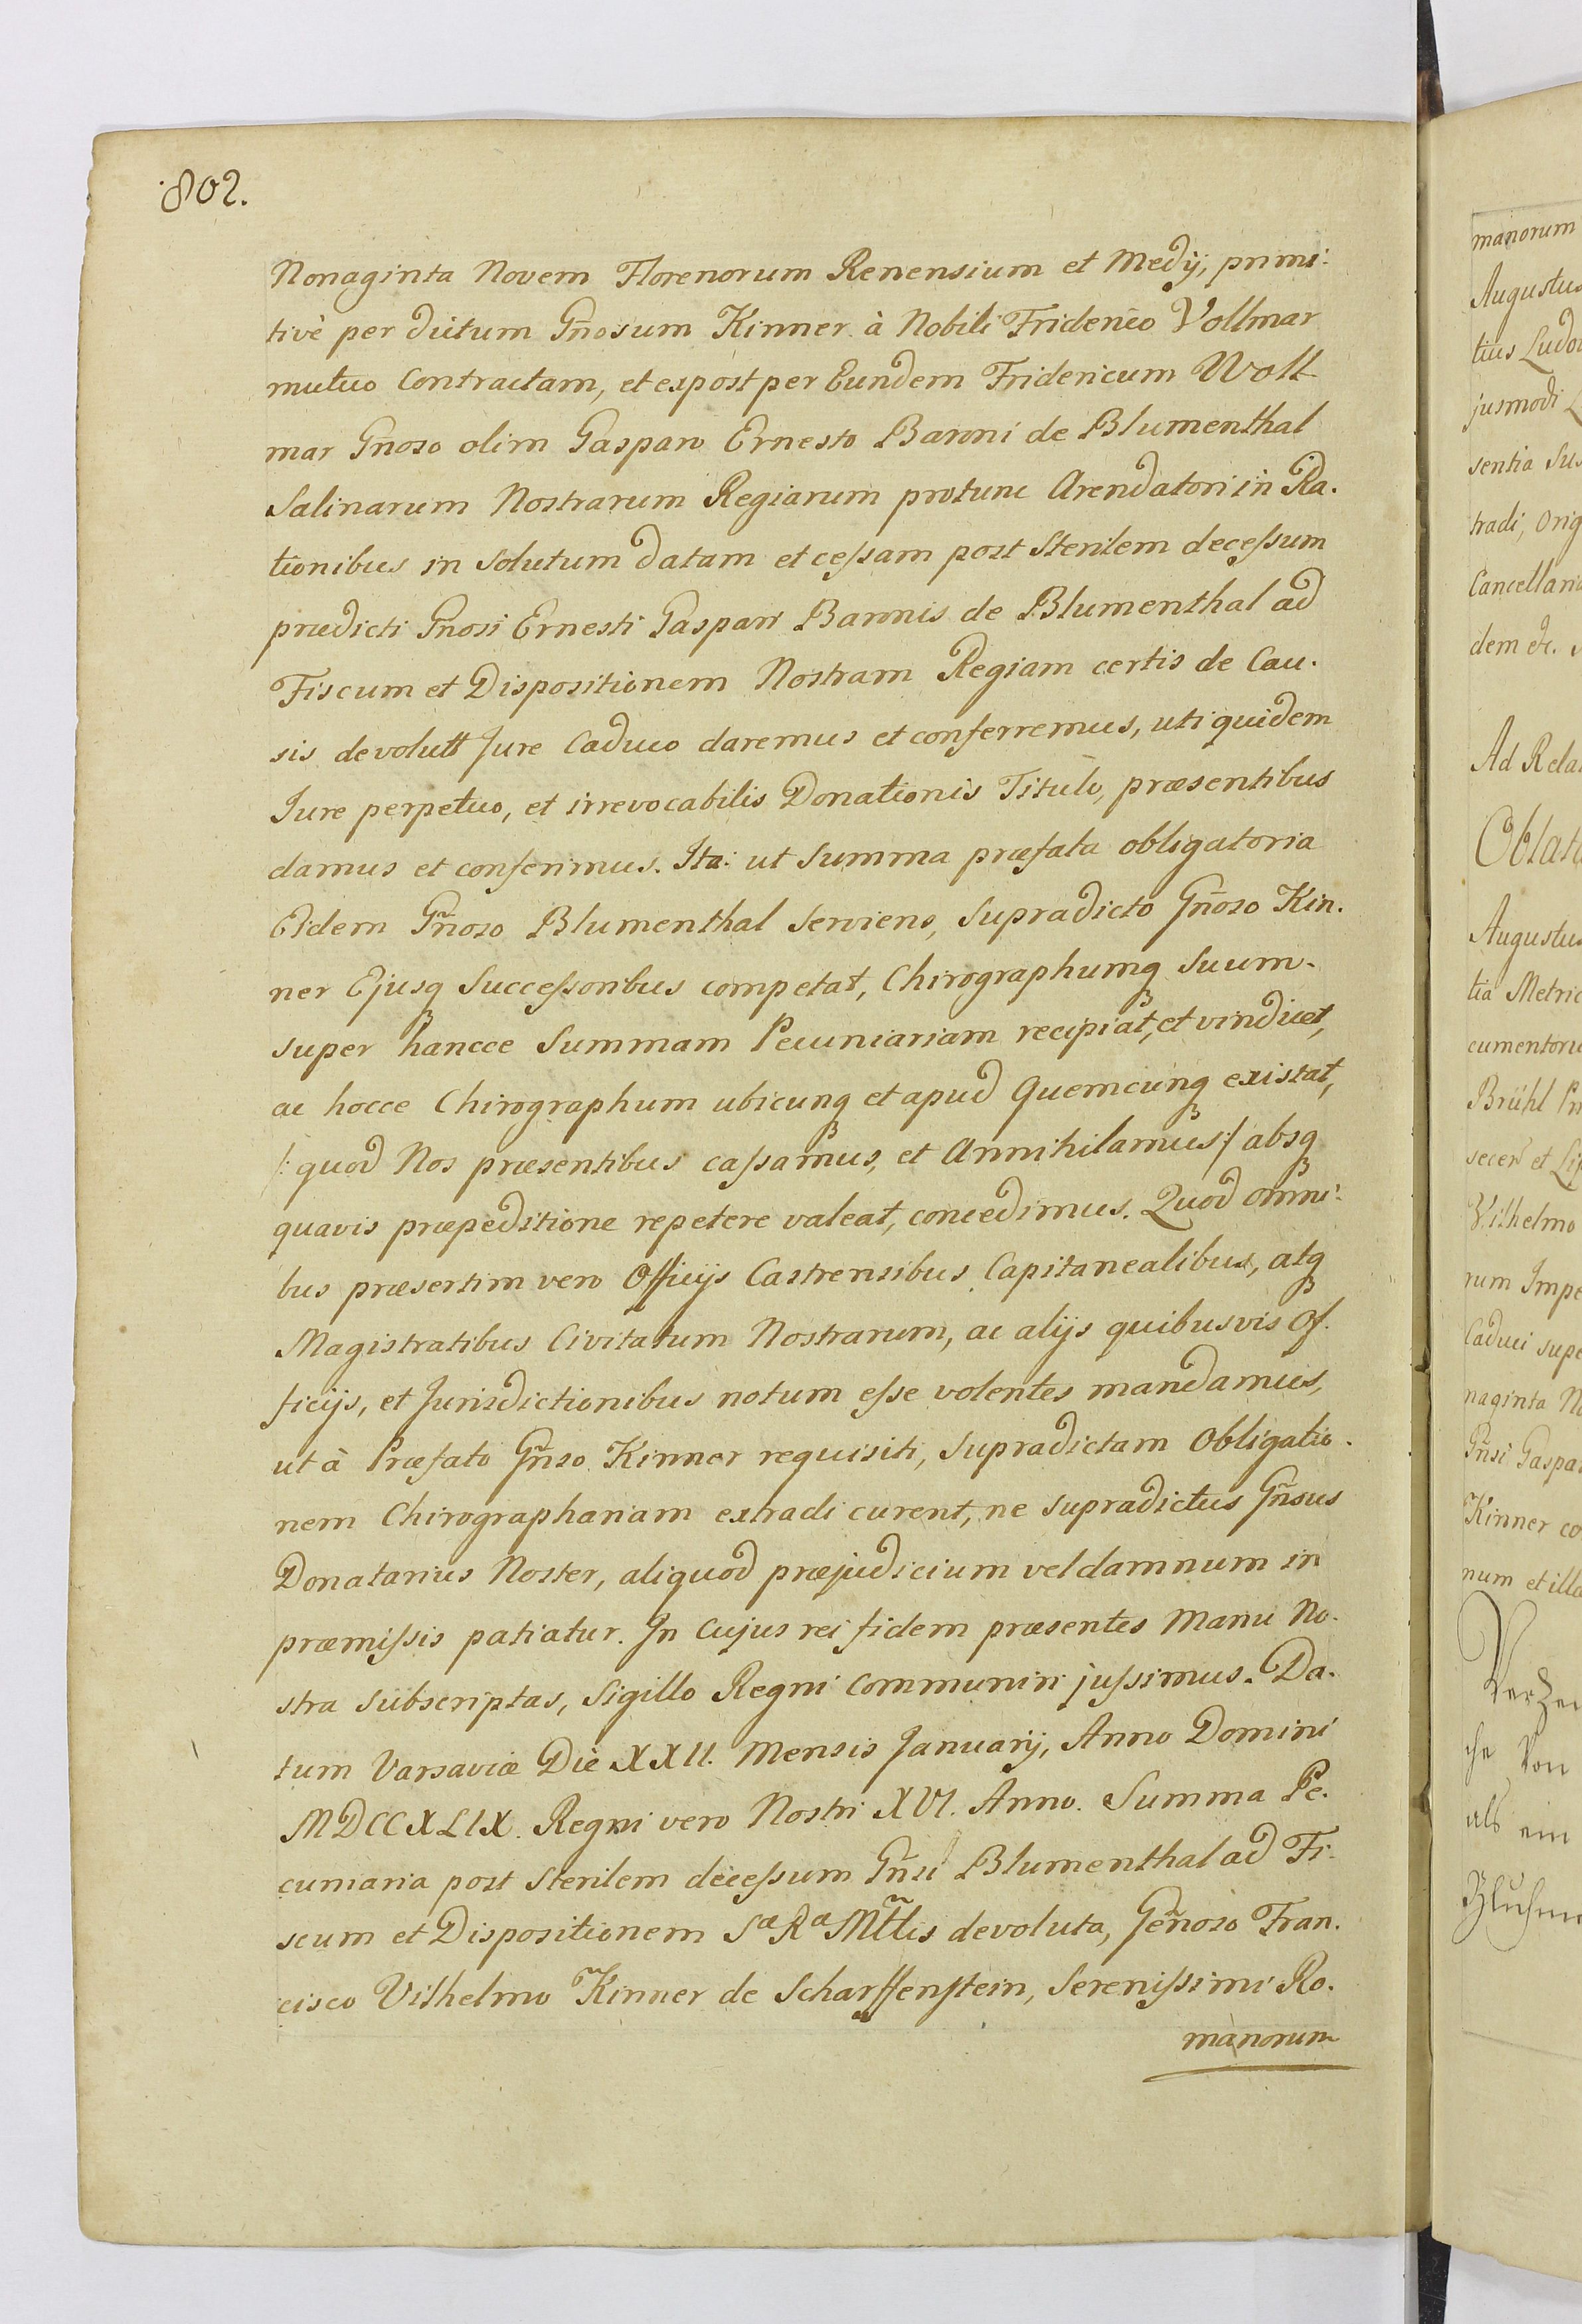 802.
Nonaginta Novem Florenorum Renensium et Medij, primi-
tivè per dictum Gñosum Kinner à Nobili Friderico Vollmar
mutuo Contractam, et expost per Eundem Fridericum Woll-
mar Gñoso olim Gasparo Ernesto Baroni de Blumenthal
Salinarum Nostrarum Regiarum protunc Arendatori in Ra-
tionibus in Solutum datam et cessam post Sterilem decessum
prædicti Gñosi Ernesti Gaspari Baronis de Blumenthal ad
Fiscum et Dispositionem Nostram Regiam certis de Cau-
sis devolutt Jure Caduco daremus et conferremus, uti quidem
Jure perpetuo, et irrevocabilis Donationis Titulo, præsentibus
damus et conferimus. Ita: ut Summa præfata obligatoria
Eidem Gñoso Blumenthal Serviens, Supradicto Gñoso Kin-
ner Ejusq Successoribus competat, Chirographumq Suum
super hancce Summam Pecuniariam recipiat, et vindicet,
ac hocce Chirographum ubicunq et apud Quemcunq existat,
/: quod Nos præsentibus cassamus, et Annihilamus :/ absq
quavis præpeditione repetere valeat, concedimus. Quod omni-
bus præsertim vero Officijs Castrensibus Capitanealibus, atq
Magistratibus Civitatum Nostrarum, ac alijs quibusvis Of-
ficijs, et Jurisdictionibus notum esse volentes mandamus,
ut à Præfato Gñso Kinner requisiti, Supradictam Obligatio-
nem Chirographariam extradi curent, ne supradictus Gñsus
Donatarius Noster, aliquod præjudicium vel damnum in
præmissis patiatur. In Cujus rei fidem præsentes Manu No-
stra Subscriptas, Sigillo Regni Communiri jussimus. Da-
tum Varsaviæ Die XXII. Mensis Januarij, Anno Domini
MDCCXLIX. Regni vero Nostri XVI. Anno. Summa Pe-
cuniaria post Sterilem decessum Gñsi Blumenthal ad Fi-
scum et Dispositionem Sæ Ræ Mttis devoluta, Geñoso Fran-
cisco Vilhelmo Kinner de Scharffenstein, Serenissimi Ro-
manorum
manorum
Augustus
tius
jusmodi
sentia
tradi,
dem etc.
Ad
Augustus
tia
Brühl
et
Vilhelmo
rum
Caduci
naginta
Kinner
num et
von
als ein